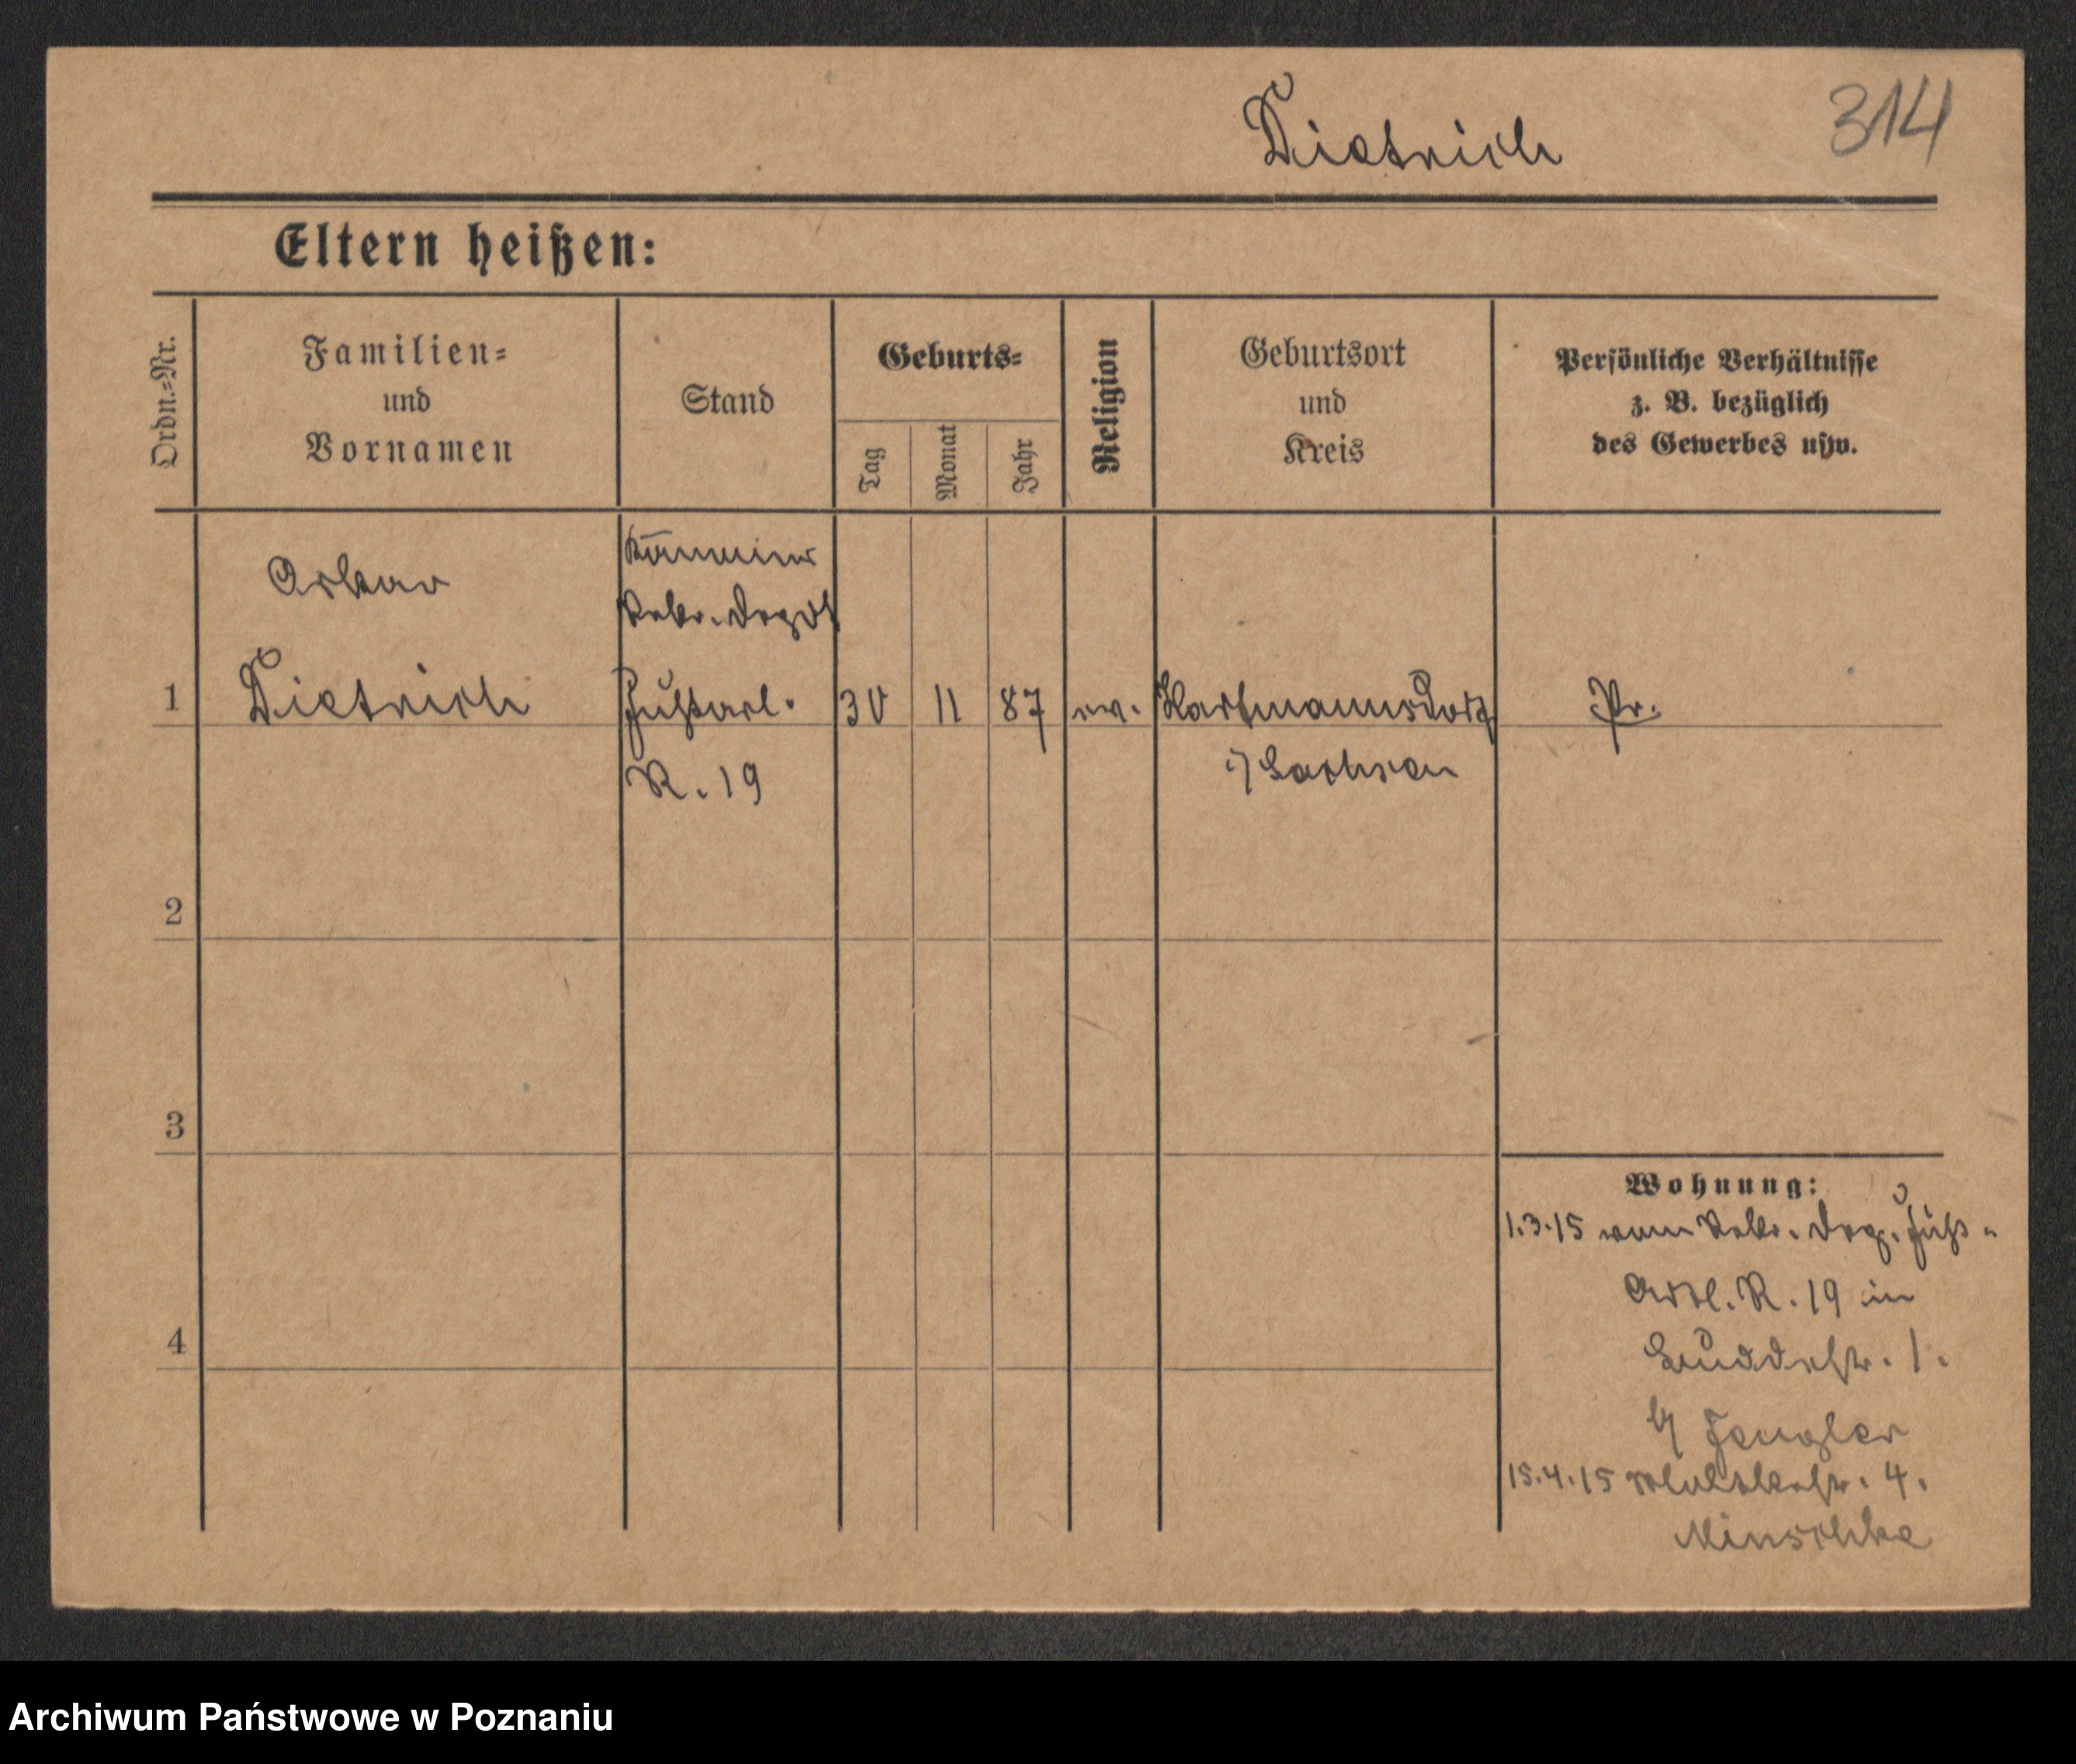 Dietrich
314
Eltern heißen:
Ordn.-Nr.
Familien-
und
Vornamen
Stand
Geburts-
Tag
Monat
Jahr
Religion
Geburtsort
und
Kreis
Persönliche Verhältnisse
z. B. bezüglich
des Gewerbes usw.
Oskar
Rekr. Depot
1
Dietrich
Fußartl.
30
11
87
ev.
Hartmannsdorf
Pr.
R. 19
i/ Sachsen
2
3
4
Wohnung:
1.3.15 vom Rekr. Dep. Fuß-
Artl. R. 19 in
1.
b/ Fengler
15.4.15 4.
Minschke
Archiwum Państwowe w Poznaniu